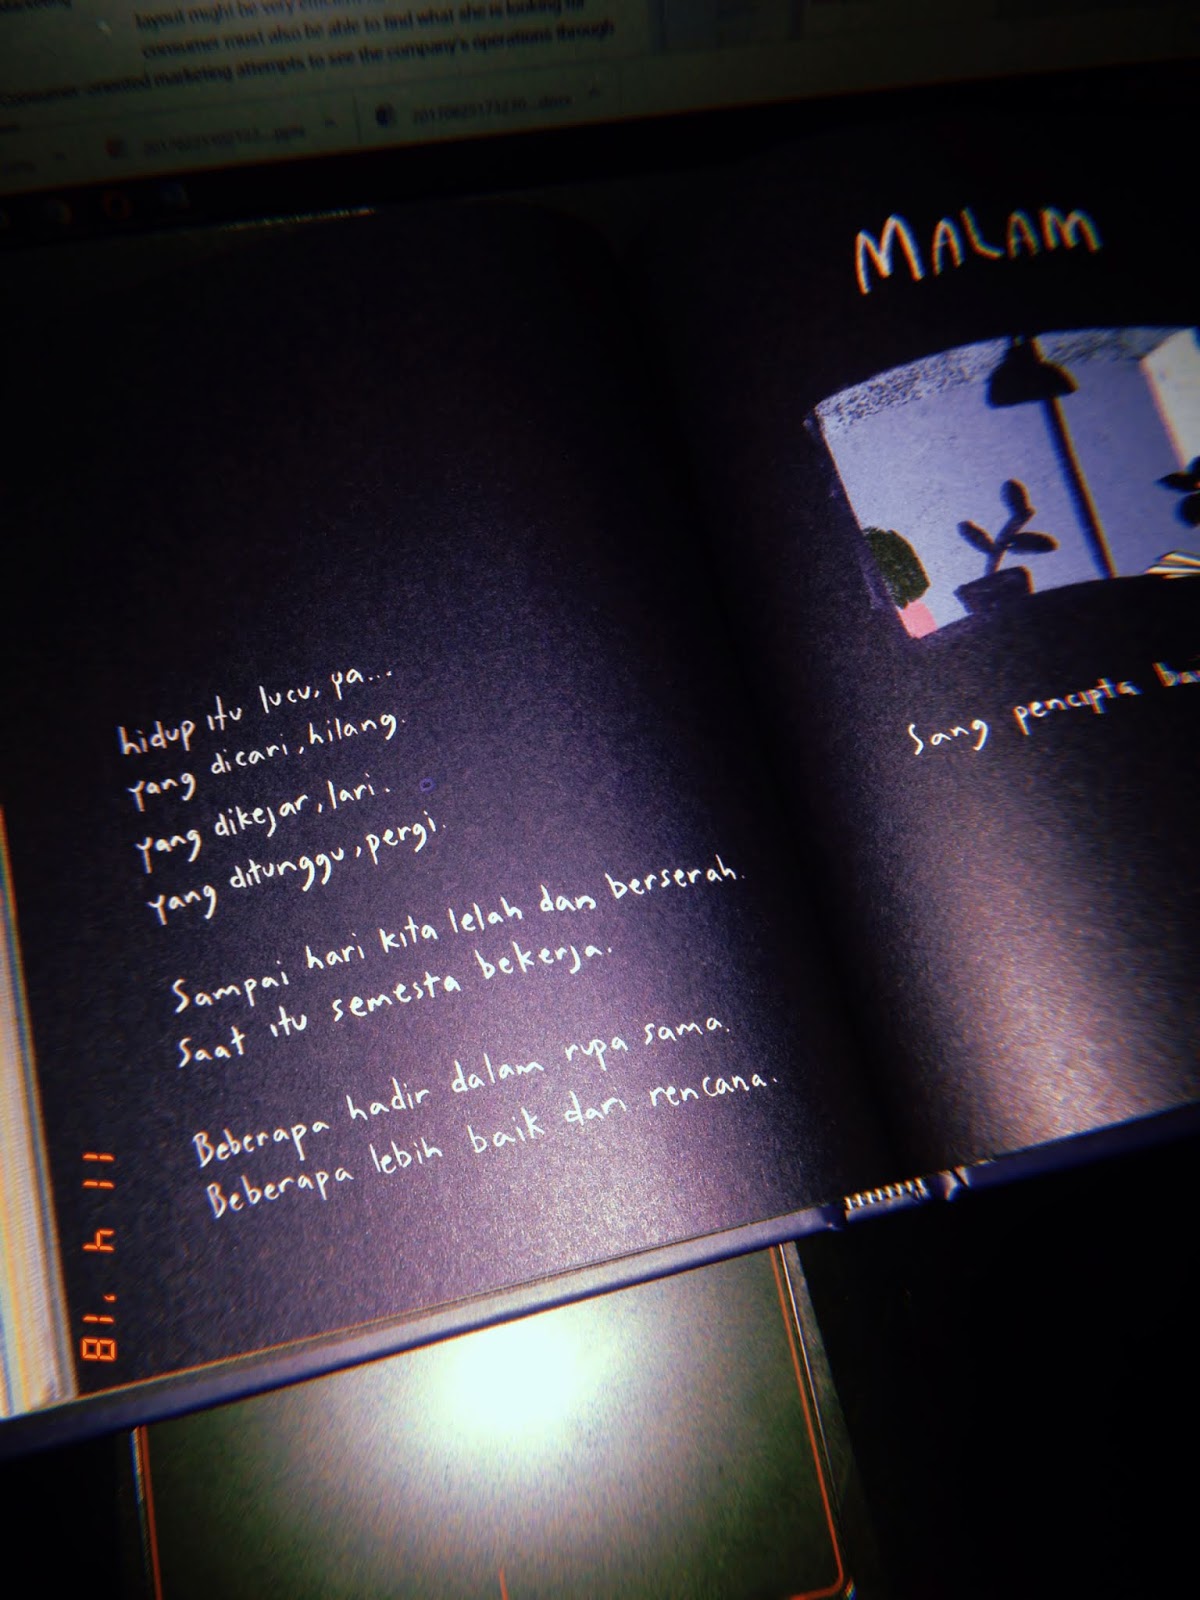 layout might be very
consumer must also be able to find what she is looking
consumer-oriented marketing attempts to see the company's operations through
hidup itu lucu, ya...
yang dicari, hilang.
yang dikejar, lari.
yang ditunggu, pergi.
Sampai hari kita lelah dan berserah.
Saat itu semesta bekerja.
Beberapa hadir dalam rupa sama.
Beberapa lebih baik dari rencana.
MALAM
Sang pencipta